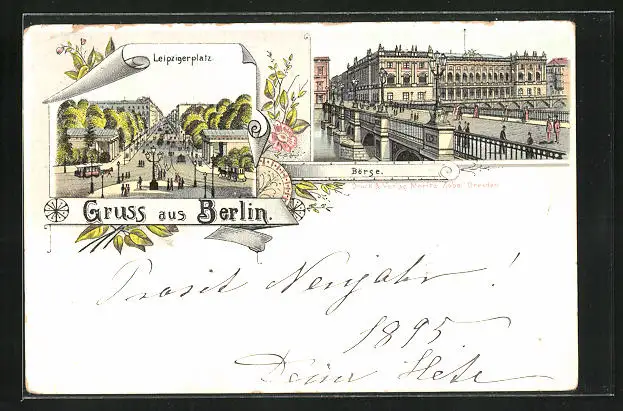 Leipzigerplatz.
Börse.
Druck & Verlag Moritz Zobel Dresden
Gruss aus Berlin.
Prosit Neujahr!
1895
Deine